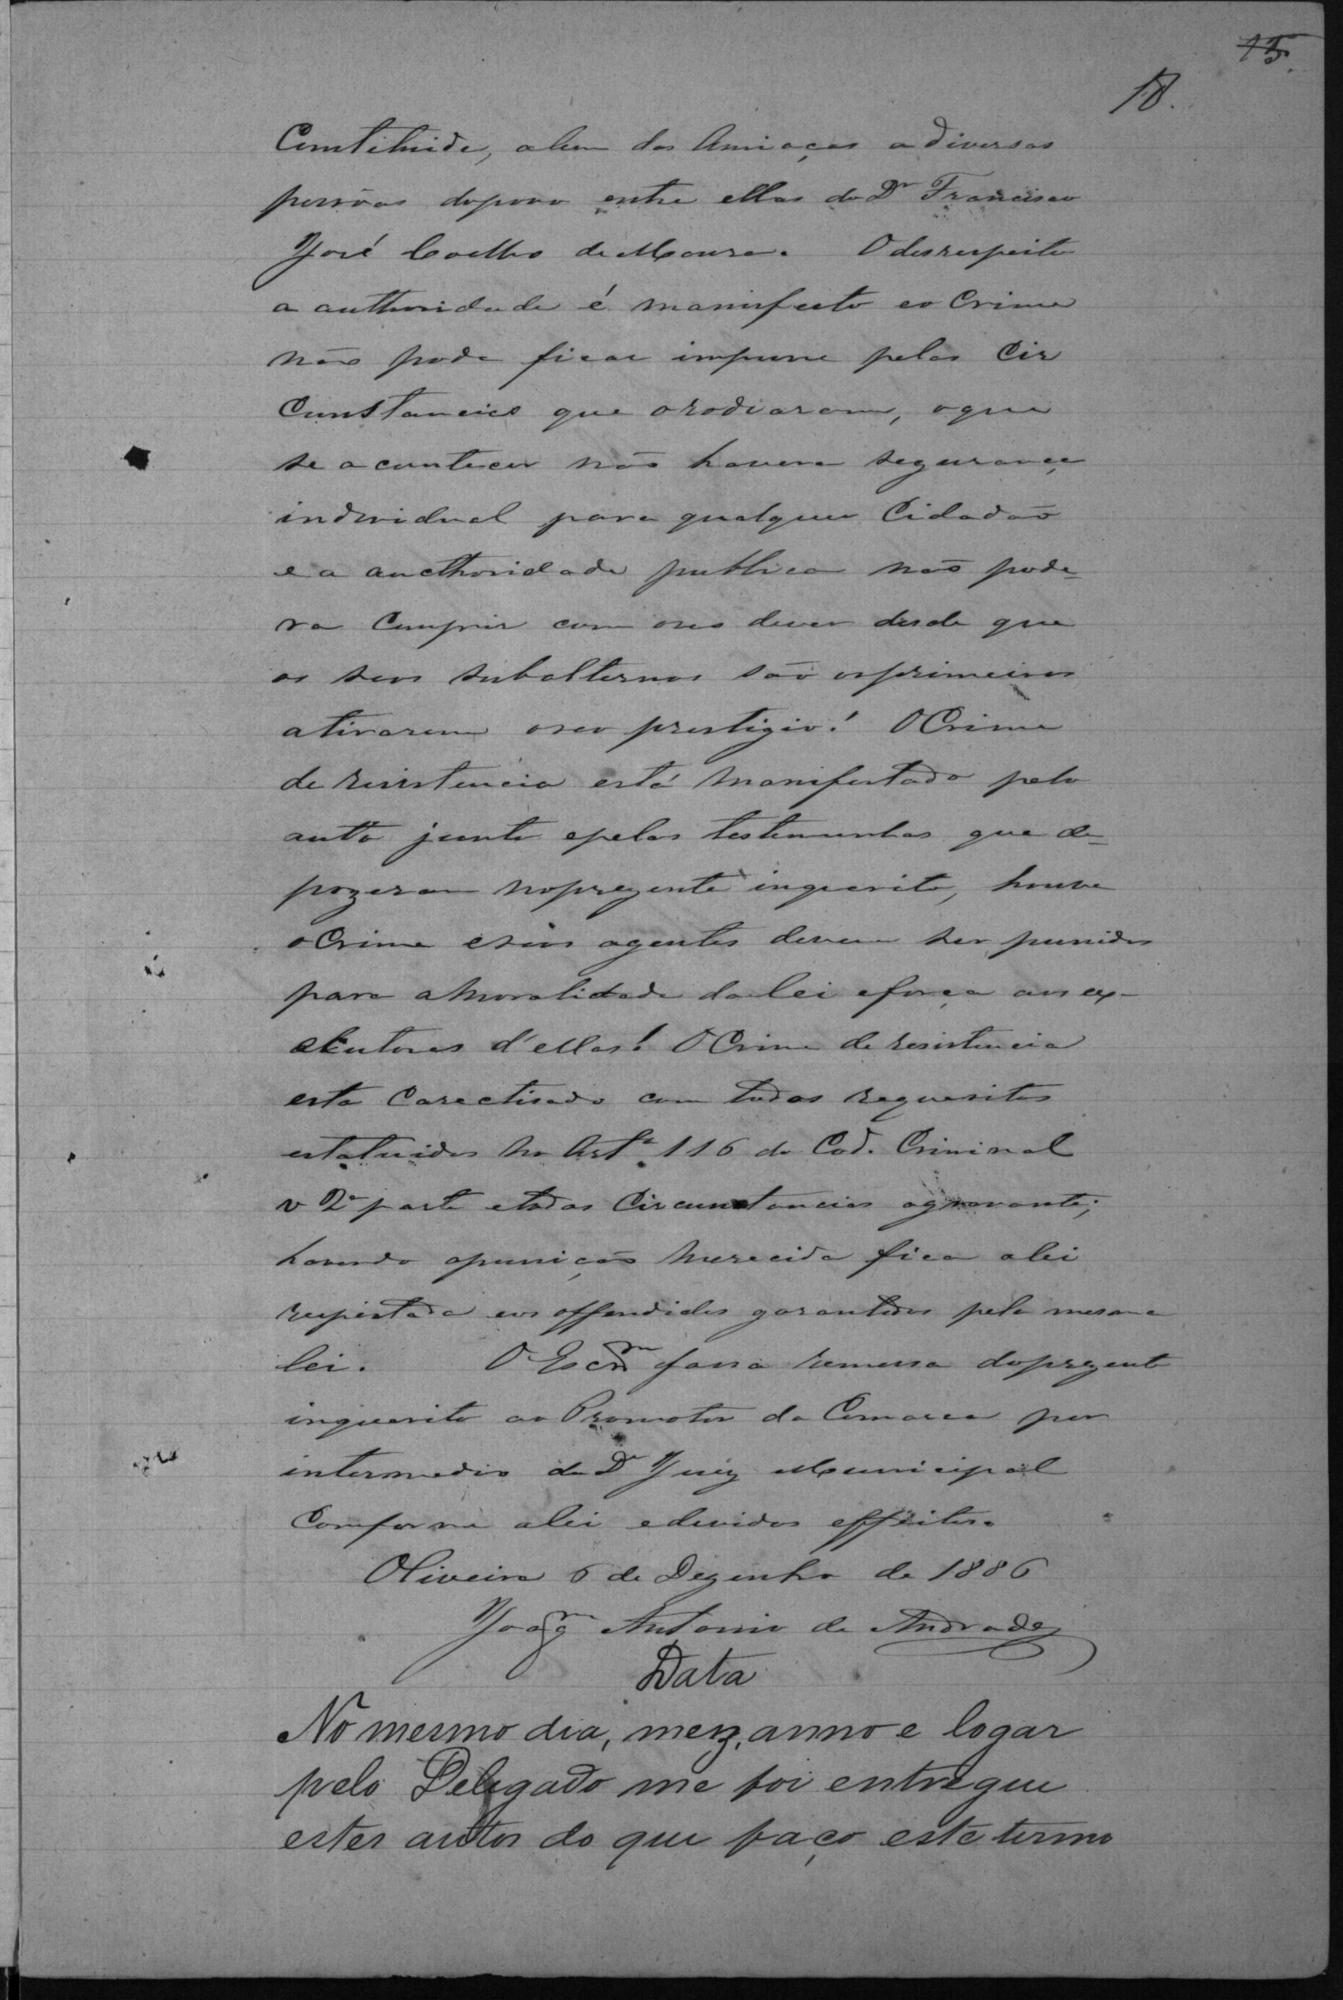 15.
18.
Comtituide, alem das Amiaças a diversas
pessôas dopovo entre ellas do Dr Francisco
José Coelho de Moura. O desrespeito
a authoridade é manifesto eo Crime
não pode ficar impune pelas Cir
Cunstancias que orodiaram, oque
se acontecer não havera segurança
individual para qualquer Cidadão
e a aucthoridade publica não pode-
ra Cumprir com oseo dever desde que
os seos subalternos são osprimeiros
atirarem oseo prestigio! O Crime
de resistencia está manifestado pelo
auto junto epelas testemunhas que de-
pozeram noprezente inquerito, houve
oCrime eseos agentes devem ser punidos
para aMoralidade dalei eforça aos ex-
ecutores d'ellas! O Crime de resistencia
esta Carectisado com todos requesitos
estatuidos no Artº 116 do Cod. Criminal
v 2ª parte etodas Circunstancias agravante;
havendo apunição merecida fica alei
respeitada eos offendidos garantidos pela mesma
lei. O Escrm fassa remessa doprezente
inquerito ao Promotor da Comarca por
intermedio do Dr Juiz Municipal
Comforme alei edevidos effeitos.
Oliveira 6 de Dezembro de 1886
Joaqm Antonio de Andrade
Data
No mesmo dia, mez, anno e logar
pelo Delegado me foi entregue
estes autos do que faço este termo